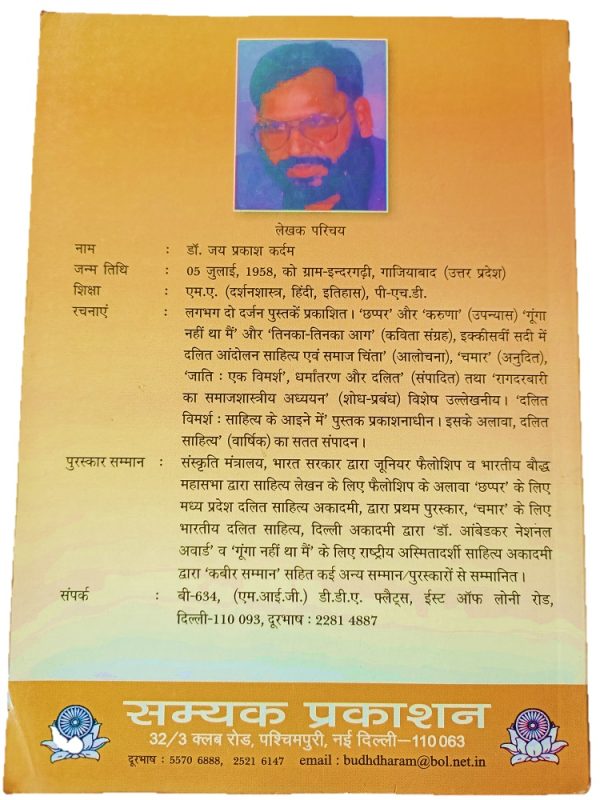 लेखक परिचय
नाम : डॉ. जय प्रकाश कर्दम
जन्म तिथि : 05 जुलाई, 1958, को ग्राम-इन्दरगढ़ी, गाजियाबाद (उत्तर प्रदेश)
शिक्षा : एम.ए. (दर्शनशास्त्र, हिंदी, इतिहास), पी-एच.डी.
रचनाएं : लगभग दो दर्जन पुस्तकें प्रकाशित। ‘छप्पर’ और ‘करुणा’ (उपन्यास) ‘गूंगा
नहीं था मैं’ और ‘तिनका-तिनका आग’ (कविता संग्रह), इक्कीसवीं सदी में
दलित आंदोलन साहित्य एवं समाज चिंता’ (आलोचना), ‘चमार’ (अनुदित),
‘जाति : एक विमर्श’, धर्मांतरण और दलित’ (संपादित) तथा ‘रागदरबारी
का समाजशास्त्रीय अध्ययन’ (शोध-प्रबंध) विशेष उल्लेखनीय। ‘दलित
विमर्श : साहित्य के आइने में’ पुस्तक प्रकाशनाधीन। इसके अलावा, दलित
साहित्य’ (वार्षिक) का सतत संपादन।
पुरस्कार सम्मान : संस्कृति मंत्रालय, भारत सरकार द्वारा जूनियर फैलोशिप व भारतीय बौद्ध
महासभा द्वारा साहित्य लेखन के लिए फैलोशिप के अलावा ‘छप्पर’ के लिए
मध्य प्रदेश दलित साहित्य अकादमी, द्वारा प्रथम पुरस्कार, ‘चमार’ के लिए
भारतीय दलित साहित्य, दिल्ली अकादमी द्वारा ‘डॉ. आंबेडकर नेशनल
अवार्ड’ व ‘गूंगा नहीं था मैं’ के लिए राष्ट्रीय अस्मितादर्शी साहित्य अकादमी
द्वारा ‘कबीर सम्मान’ सहित कई अन्य सम्मान/पुरस्कारों से सम्मानित।
संपर्क : बी-634, (एम.आई.जी.) डी.डी.ए. फ्लैट्स, ईस्ट ऑफ लोनी रोड,
दिल्ली-110 093, दूरभाष : 2281 4887
सम्यक प्रकाशन
32/3 क्लब रोड, पश्चिमपुरी, नई दिल्ली—110063
दूरभाष : 5570 6888, 2521 6147 email : budhdharam@bol.net.in